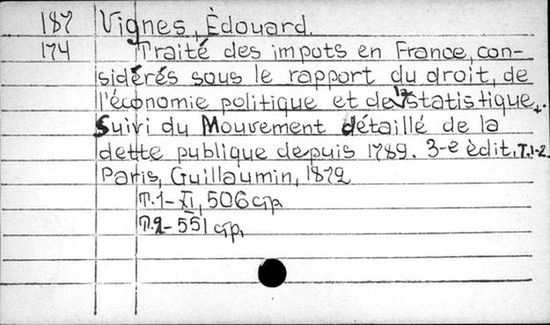 187 Vignes, Èdouard.
174 Traité des impots en France, con-
sidérés sous le rapport du droit, de
l'économie politique et de la statistique.
Suivi du Mouvement détaillé de la
dette publique depuis 1789. 3-e èdit., T.1-2.
Paris, Guillaumin, 1872
T.1- XI, 506 стр.
T.2- 551 стр.